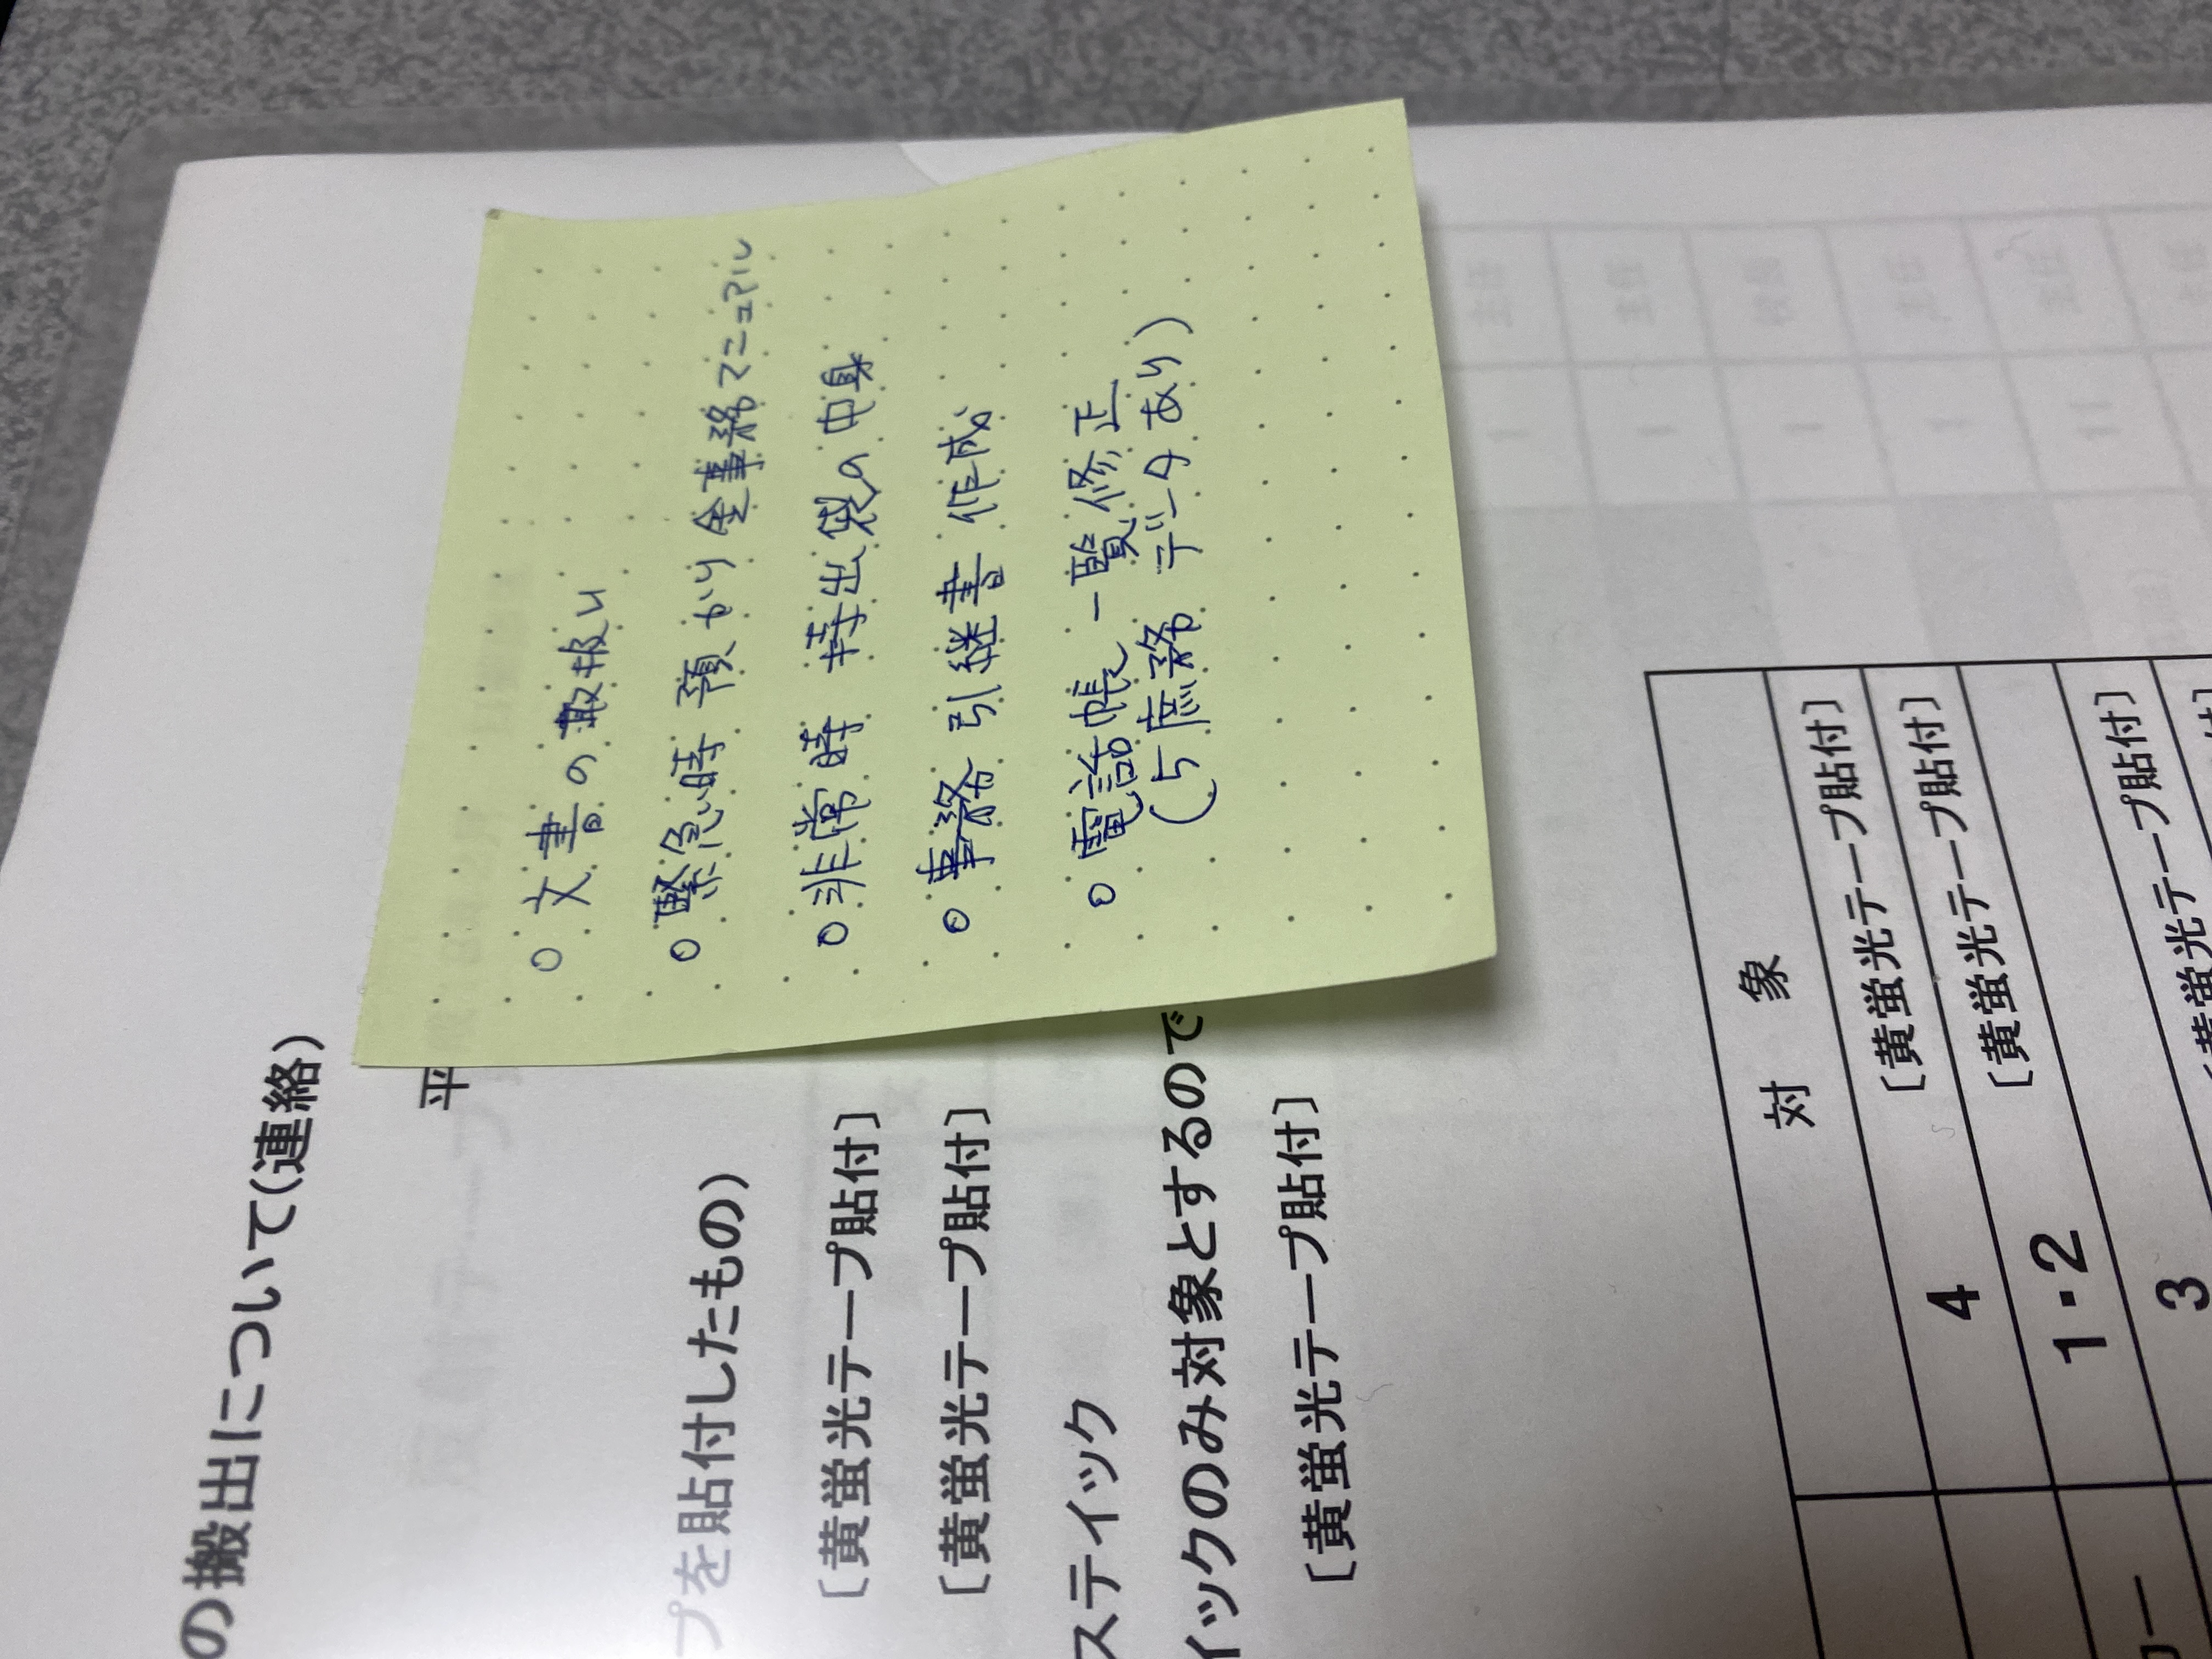 の搬出について(連絡)
平
プを貼付したもの)
[黄蛍光テープ貼付]
[黄蛍光テープ貼付]
スティック
イックのみ対象とするので
[黄蛍光テープ貼付]
○文書の取扱い
○緊急時預かり金事務マニュアル
○非常時持出袋の中身
○事務引継書作成
○電話帳一覧修正
(5庶務データあり)
対 象
4 [黄蛍光テープ貼付]
1・2 [黄蛍光テープ貼付]
3 [黄蛍光テープ貼付]
主任
1
主任
1
1
主任
1
主任
11